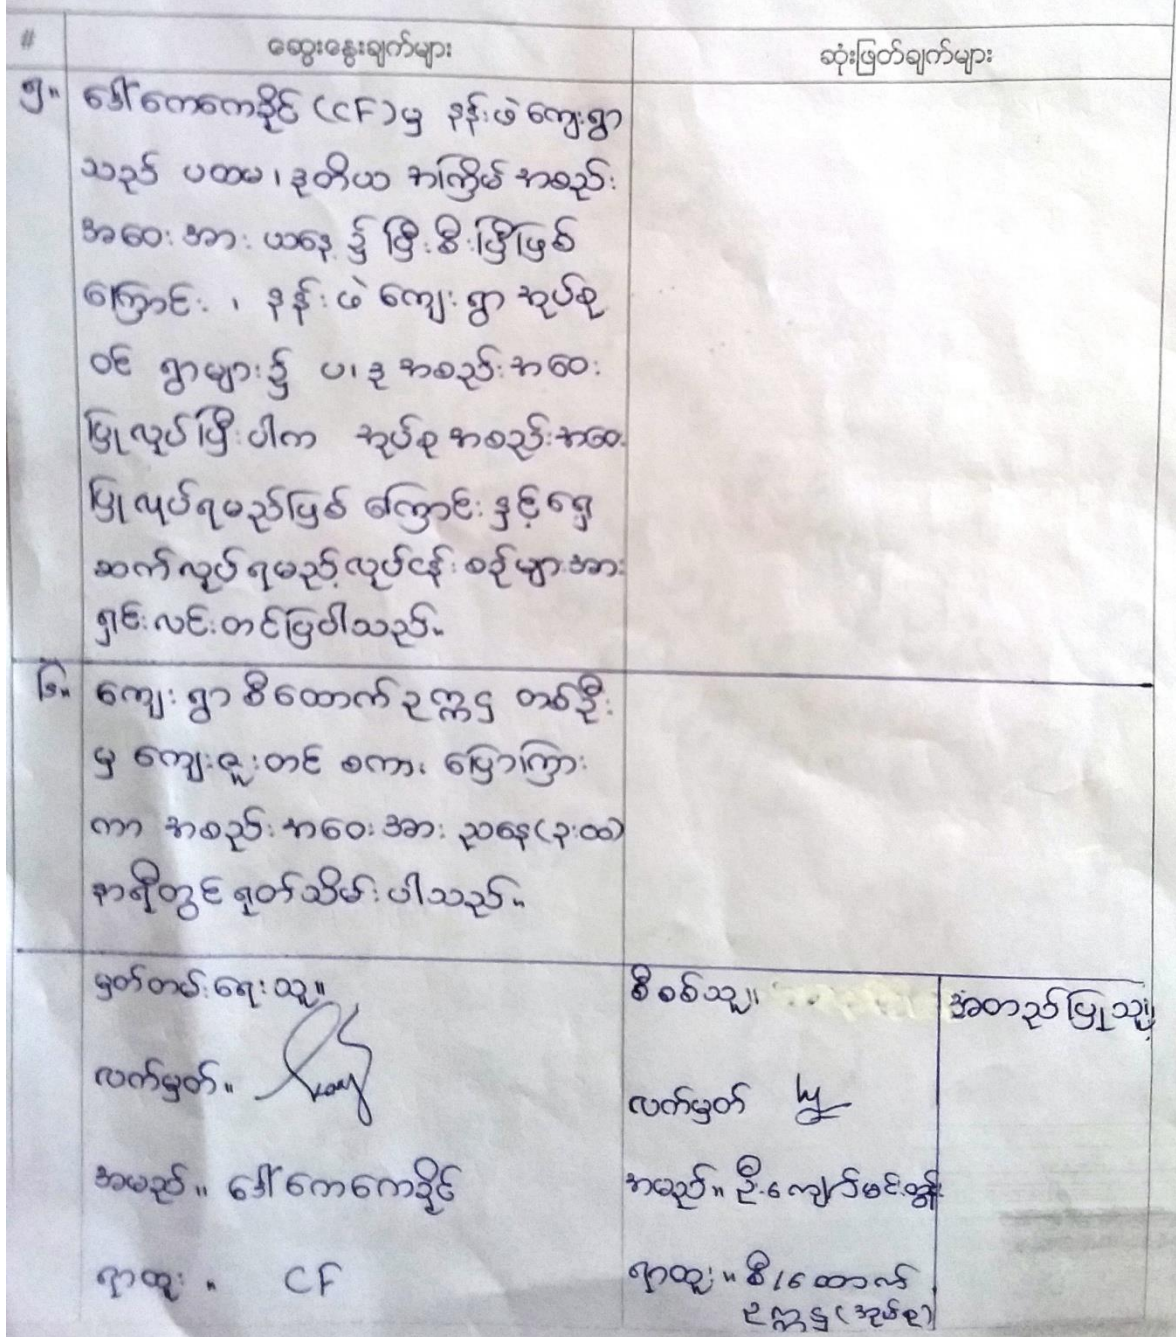 # ဆွေးနွေးချက်များ ဆုံးဖြတ်ချက်များ
၅။ ဒေါ်ကေကေခိုင် (CF) မှ နန်းဖဲ ကျေးရွာ
သည် ပထမ၊ ဒုတိယ အကြိမ် အစည်း
အဝေး အား ယနေ့၌ ပြီးစီးပြီဖြစ်
ကြောင်း ၊ နန်းဖဲ ကျေးရွာ အုပ်စု
ဝင် ရွာများ၌ ပ၊ ဒု အစည်းအဝေး
ပြုလုပ်ပြီးပါက အုပ်စု အစည်းအဝေး
ပြုလုပ်ရမည်ဖြစ် ကြောင်း နှင့် ရှေ့
ဆက်လုပ်ရမည့် လုပ်ငန်းစဉ်များအား
ရှင်းလင်းတင်ပြပါသည်။
၆။ ကျေးရွာ စီထောက်ဥက္ကဌ တစ်ဦး
မှ ကျေးဇူးတင် စကား ပြောကြား
ကာ အစည်းအဝေးအား ညနေ(၃:ထ၀)
နာရီတွင် ရုတ်သိမ်းပါသည်။
မှတ်တမ်းရေးသူ။ စီစစ်သူ။ အတည်ပြုသူ။
လက်မှတ်။ လက်မှတ်
အမည်။ ဒေါ်ကေကေခိုင် အမည်။ ဦးကျော်မင်းထွန်း
ရာထူး ။ CF ရာထူး။ စီ/ထောက်
ဥက္ကဌ (အုပ်စု)